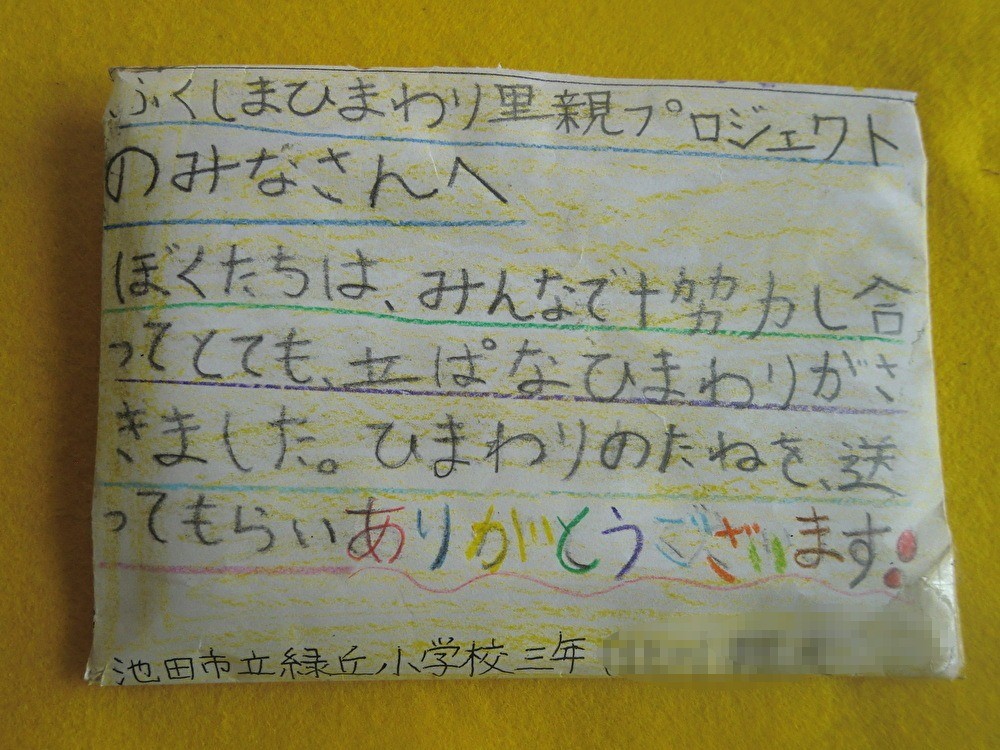 ふくしまひまわり里親プロジェクト
のみなさんへ
ぼくたちは、みんなで十努力し合
ってとても、立ぱなひまわりがさ
きました。ひまわりのたねを、送
ってもらいありがとうございます!
池田市立緑丘小学校三年